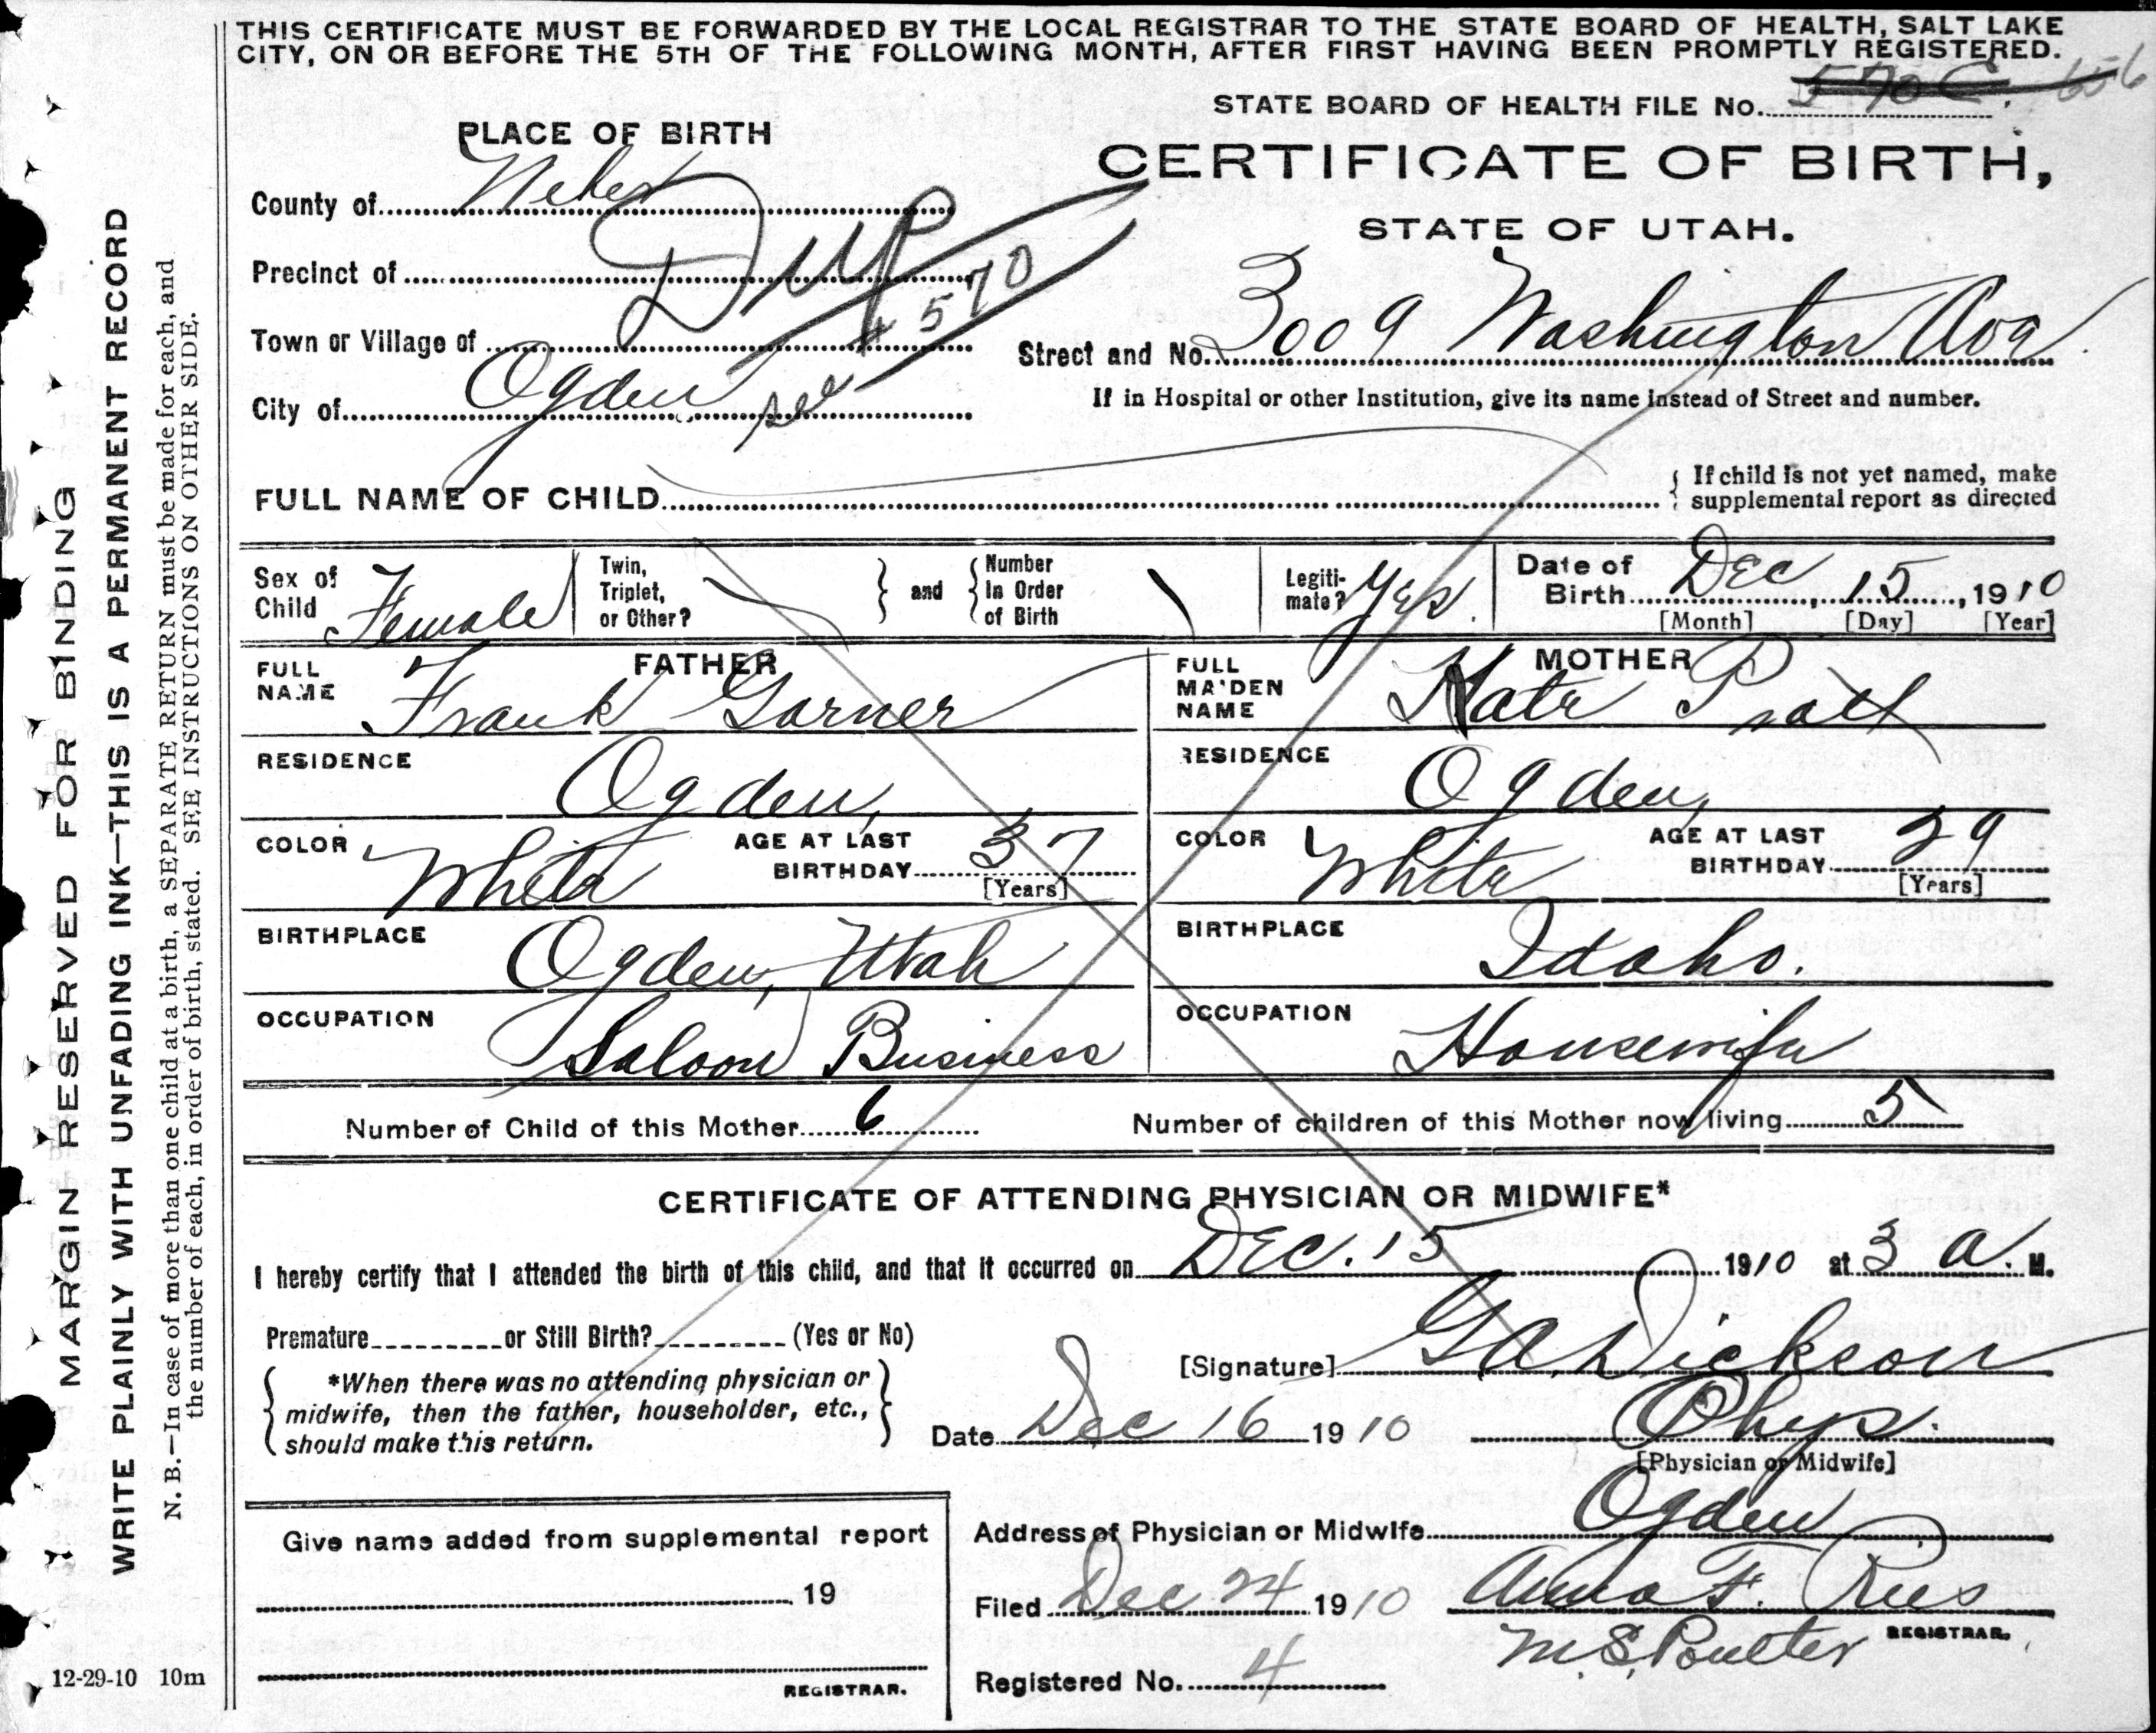 THIS CERTIFICATE MUST BE FORWARDED BY THE LOCAL REGISTRAR TO THE STATE BOARD OF HEALTH, SALT LAKE
CITY, ON OR BEFORE THE 5TH OF THE FOLLOWING MONTH, AFTER FIRST HAVING BEEN PROMPTLY REGISTERED.
STATE BOARD OF HEALTH FILE No. 570 C. 656
PLACE OF BIRTH
CERTIFICATE OF BIRTH,
STATE OF UTAH.
County of Weber
Precinct of
Dup
see 570
Town or Village of
City of Ogden
Street and No. 3009 Washington Ave
If in Hospital or other Institution, give its name instead of Street and number.
FULL NAME OF CHILD
If child is not yet named, make
supplemental report as directed
Sex of Child Female
Twin, Triplet, or Other?
and
Number In Order of Birth
Legiti-mate? Yes.
Date of Birth Dec 15, 1910
[Month] [Day] [Year]
FATHER
FULL NAME Frank Garner
RESIDENCE Ogden,
COLOR White
AGE AT LAST BIRTHDAY 37
[Years]
BIRTHPLACE Ogden, Utah
OCCUPATION Saloon Business
MOTHER
FULL MAIDEN NAME Kate Pratt
RESIDENCE Ogden,
COLOR White
AGE AT LAST BIRTHDAY 29
[Years]
BIRTHPLACE Idaho.
OCCUPATION Housewife
Number of Child of this Mother 6
Number of children of this Mother now living 5
CERTIFICATE OF ATTENDING PHYSICIAN OR MIDWIFE*
I hereby certify that I attended the birth of this child, and that it occurred on Dec. 15 1910 at 3 a. M.
Premature or Still Birth? (Yes or No)
*When there was no attending physician or
midwife, then the father, householder, etc.,
should make this return.
[Signature] G A Dickson
Date Dec 16 1910
Phys.
[Physician or Midwife]
Address of Physician or Midwife Ogden
Filed Dec 24 1910
Anna F. Rees
M.S. Poulter
REGISTRAR.
Registered No. 4
Give name added from supplemental report
19
REGISTRAR.
12-29-10 10m
MARGIN RESERVED FOR BINDING
WRITE PLAINLY WITH UNFADING INK—THIS IS A PERMANENT RECORD
N. B.—In case of more than one child at a birth, a SEPARATE RETURN must be made for each, and
the number of each, in order of birth, stated. SEE INSTRUCTIONS ON OTHER SIDE.